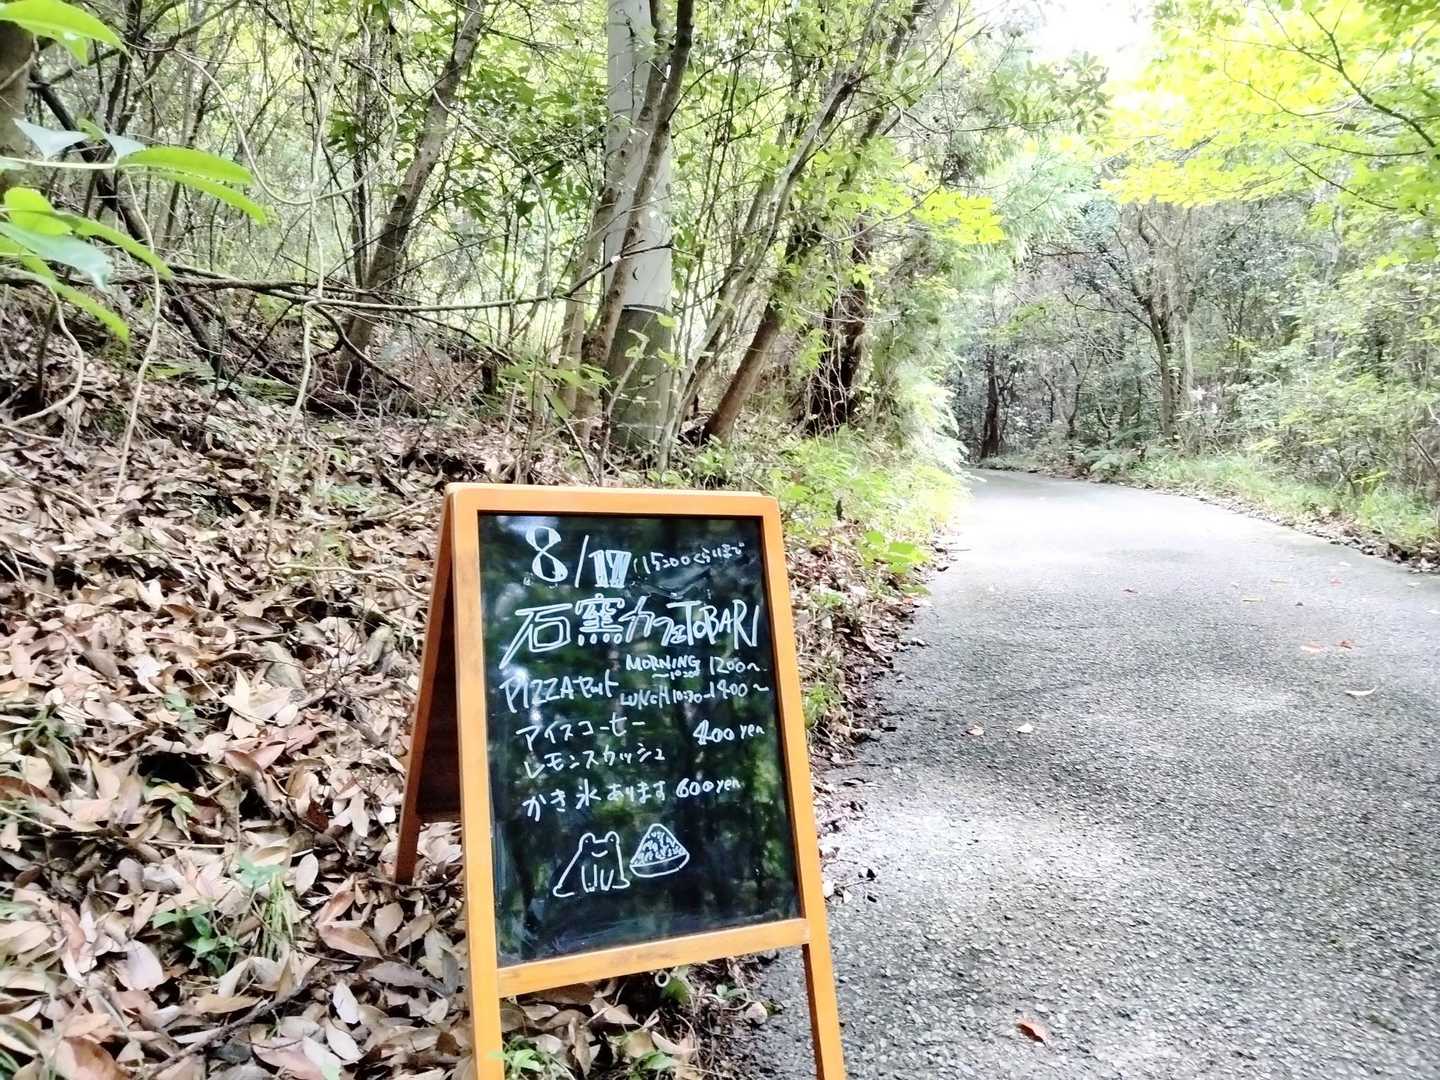 8/17 15:00くらいまで
石窯カフェTOBARI
MORNING 1200〜
〜10:00
PIZZAセット LUNCH 10:30〜1400〜
アイスコーヒー 400yen
レモンスカッシュ
かき氷あります 600yen